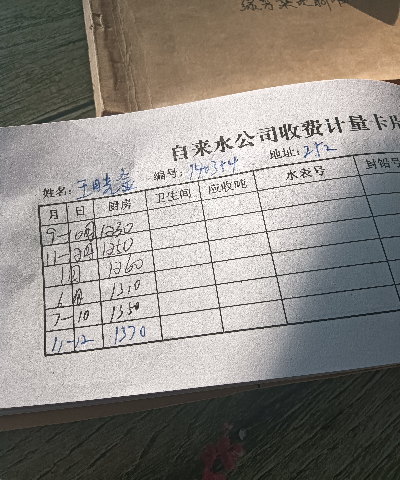 自来水公司收费计量卡片
姓名: 编号: 地址: 252
月 日 厨房 卫生间 应收吨 水表号 封铅号
9-10月 1230
11-12月 1250
1月 1260
6月 1310
7-10 1350
11-12 1370